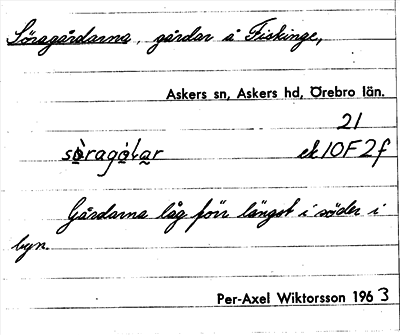 Söragårdarna, gårdar å Fiskinge,
Askers sn, Askers hd, Örebro län.
21
sö̀ragȯḷar ek 10F2f
Gårdarna låg förr längst i söder i
byn.
Per-Axel Wiktorsson 1963